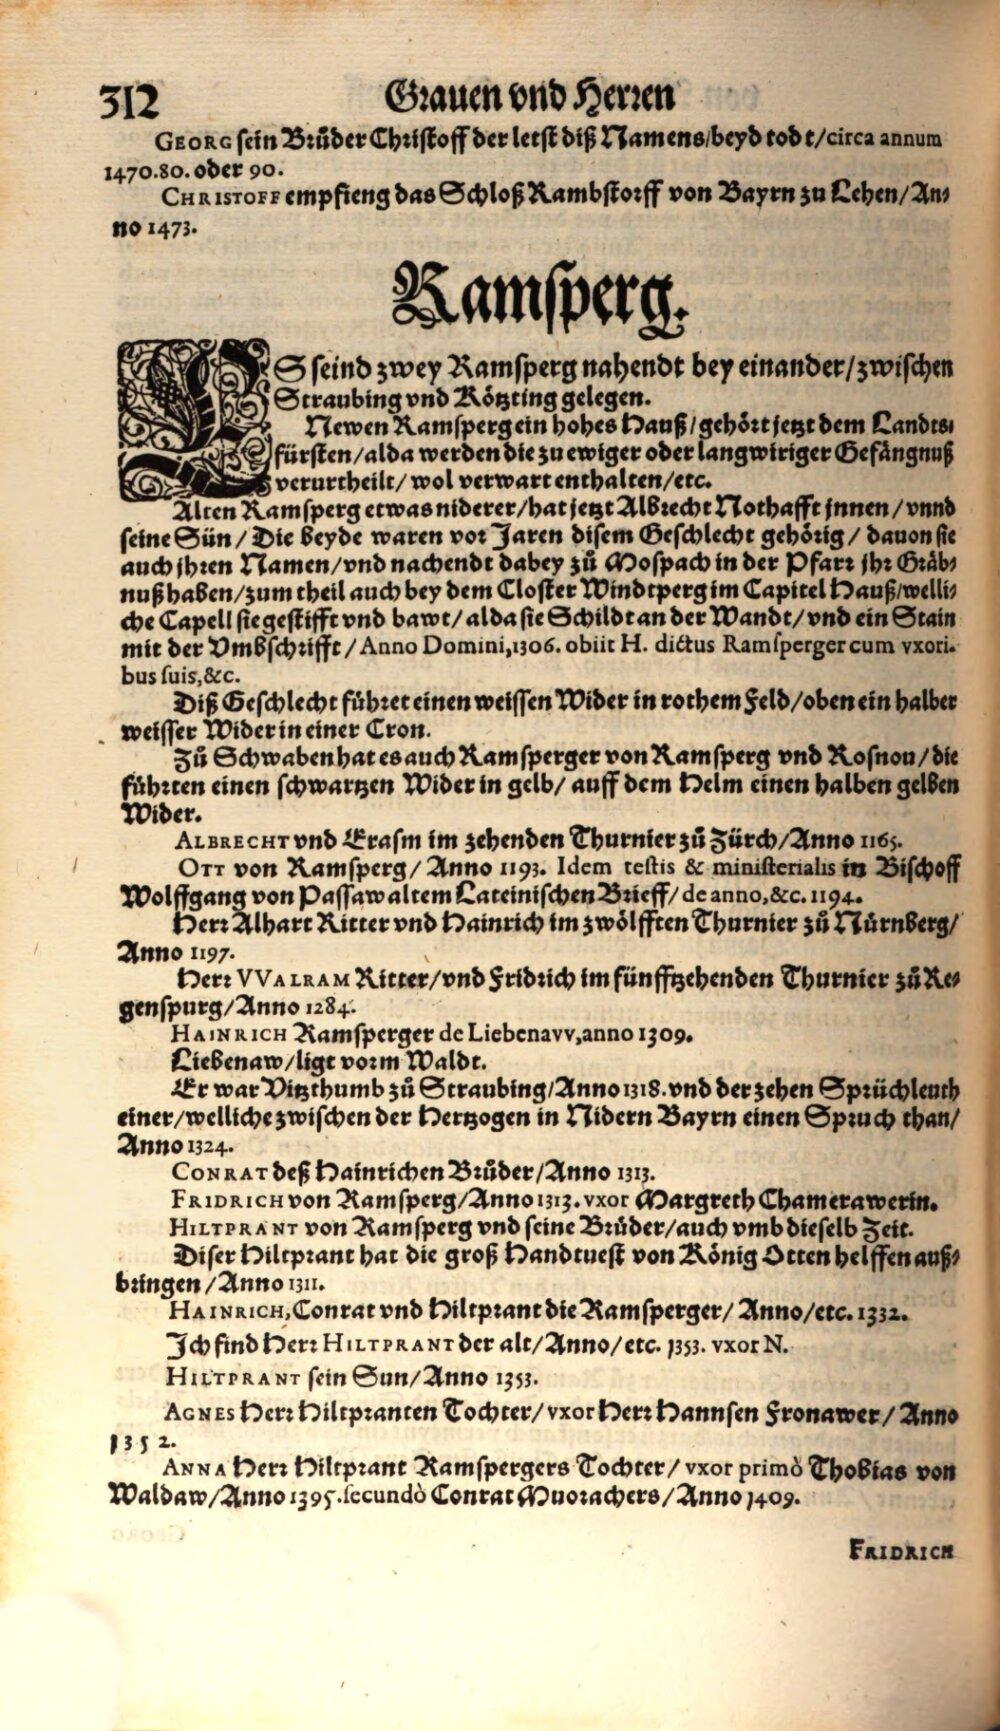 312 Grauen vnd Herren
GEORG sein Brůder Christoff der letst diß Namens/beyd todt/circa annum
1470.80. oder 90.
CHRISTOFF empfieng das Schloß Rambstorff von Bayrn zu Lehen/An⸗
no 1473.
Ramsperg.
ES seind zwey Ramsperg nahendt bey einander/zwischen
Straubing vnd Kötzting gelegen.
Newen Ramsperg ein hohes Hauß/gehört jetzt dem Landts⸗
fürsten/alda werden die zu ewiger oder langwiriger Gefängnuß
verurtheilt/wol verwart enthalten/etc.
Alten Ramsperg etwas niderer/hat jetzt Albrecht Nothafft jnnen/vnnd
seine Sün/Die beyde waren vor Jaren disem Geschlecht gehörig/dauon sie
auch jhren Namen/vnd nachendt dabey zů Mospach in der Pfarr jhr Gräb⸗
nuß haben/zum theil auch bey dem Closter Windtperg im Capitel Hauß/welli⸗
che Capell sie gestifft vnd bawt/alda sie Schildt an der Wandt/vnd ein Stain
mit der Vmbschrifft/Anno Domini,1306. obiit H. dictus Ramsperger cum vxori⸗
bus suis,&c.
Diß Geschlecht führet einen weissen Wider in rothem Feld/oben ein halber
weisser Wider in einer Cron.
Zů Schwaben hat es auch Ramsperger von Ramsperg vnd Rosnou/die
führten einen schwartzen Wider in gelb/auff dem Helm einen halben gelben
Wider.
ALBRECHT vnd Erasm im zehenden Thurnier zů Zürch/Anno 1165.
OTT von Ramsperg/Anno 1193. Idem testis & ministerialis in Bischoff
Wolffgang von Passaw altem Lateinischen Brieff/de anno,&c. 1194.
Herr Alhart Ritter vnd Hainrich im zwölfften Thurnier zů Nürnberg/
Anno 1197.
Herr VVALRAM Ritter/vnd Fridrich im fünfftzehenden Thurnier zů Re⸗
genspurg/Anno 1284.
HAINRICH Ramsperger de Liebenavv,anno 1309.
Liebenaw/ligt vorm Waldt.
Er war Vitzthumb zů Straubing/Anno 1318. vnd der zehen Sprüchleuth
einer/welliche zwischen der Hertzogen in Nidern Bayrn einen Spruch than/
Anno 1324.
CONRAT deß Hainrichen Brůder/Anno 1313.
FRIDRICH von Ramsperg/Anno 1313. vxor Margreth Chamerawerin.
HILTPRANT von Ramsperg vnd seine Brüder/auch vmb dieselb Zeit.
Diser Hiltprant hat die groß Handtuest von König Otten helffen auß⸗
bringen/Anno 1311.
HAINRICH, Conrat vnd Hiltprant die Ramsperger/Anno/etc. 1332.
Ich find Herr HILTPRANT der alt/Anno/etc. 1353. vxor N.
HILTPRANT sein Sun/Anno 1353.
AGNES Herr Hiltpranten Tochter/vxor Herr Hannsen Fronawer/Anno
1352.
ANNA Herr Hiltprant Ramspergers Tochter/vxor primò Thobias von
Waldaw/Anno 1395. secundò Conrat Muorachers/Anno 1409.
FRIDRICH